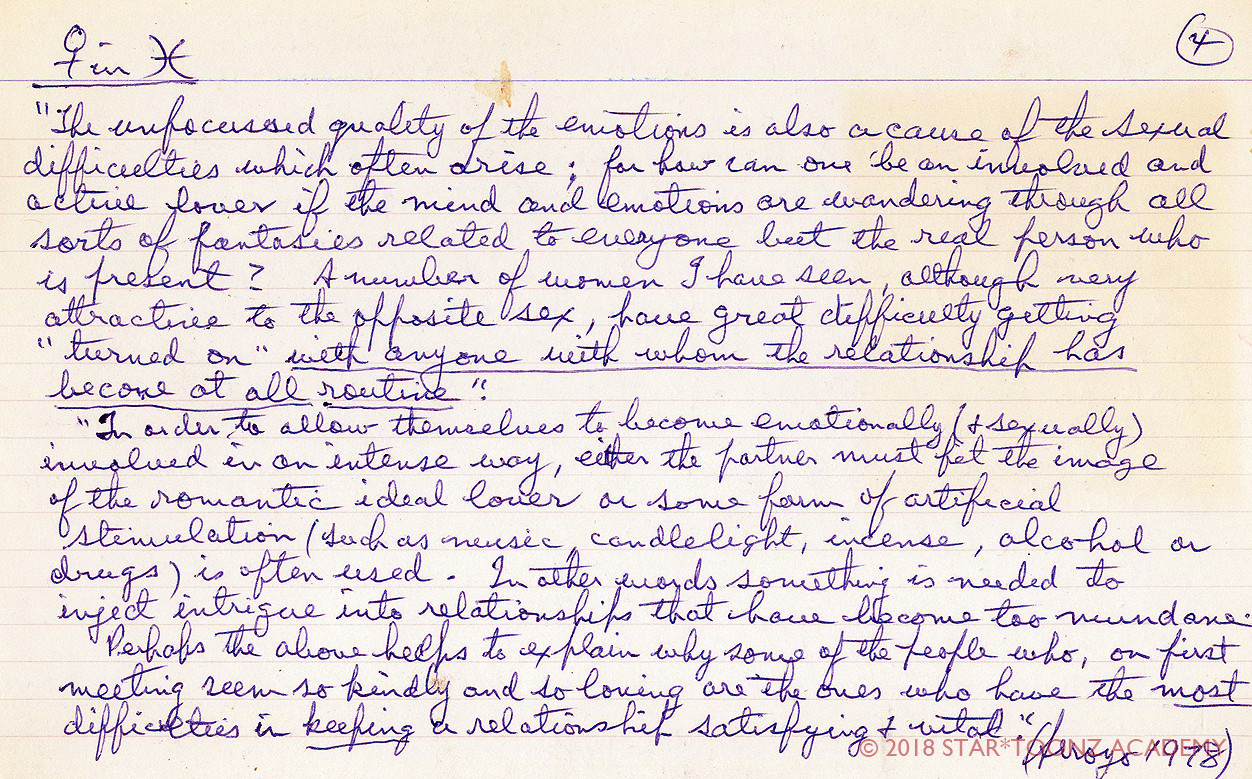 ♀ in ♓ ④
"The unfocussed quality of the emotions is also a cause of the sexual
difficulties which often arise; for how can one be an involved and
active lover if the mind and emotions are wandering through all
sorts of fantasies related to everyone but the real person who
is present? A number of women I have seen, although very
attractive to the opposite sex, have great difficulty getting
"turned on" with anyone with whom the relationship has
become at all routine".
"In order to allow themselves to become emotionally (& sexually)
involved in an intense way, either the partner must fit the image
of the romantic ideal lover or some form of artificial
stimulation (such as music, candlelight, incense, alcohol or
drugs) is often used. In other words something is needed to
inject intrigue into relationships that have become too mundane.
Perhaps the above helps to explain why some of the people who, on first
meeting seem so kindly and so loving are the ones who have the most
difficulties in keeping a relationship satisfying & vital."
(Arroyo-1978)
© 2018 STAR*TOONZ ACADEMY